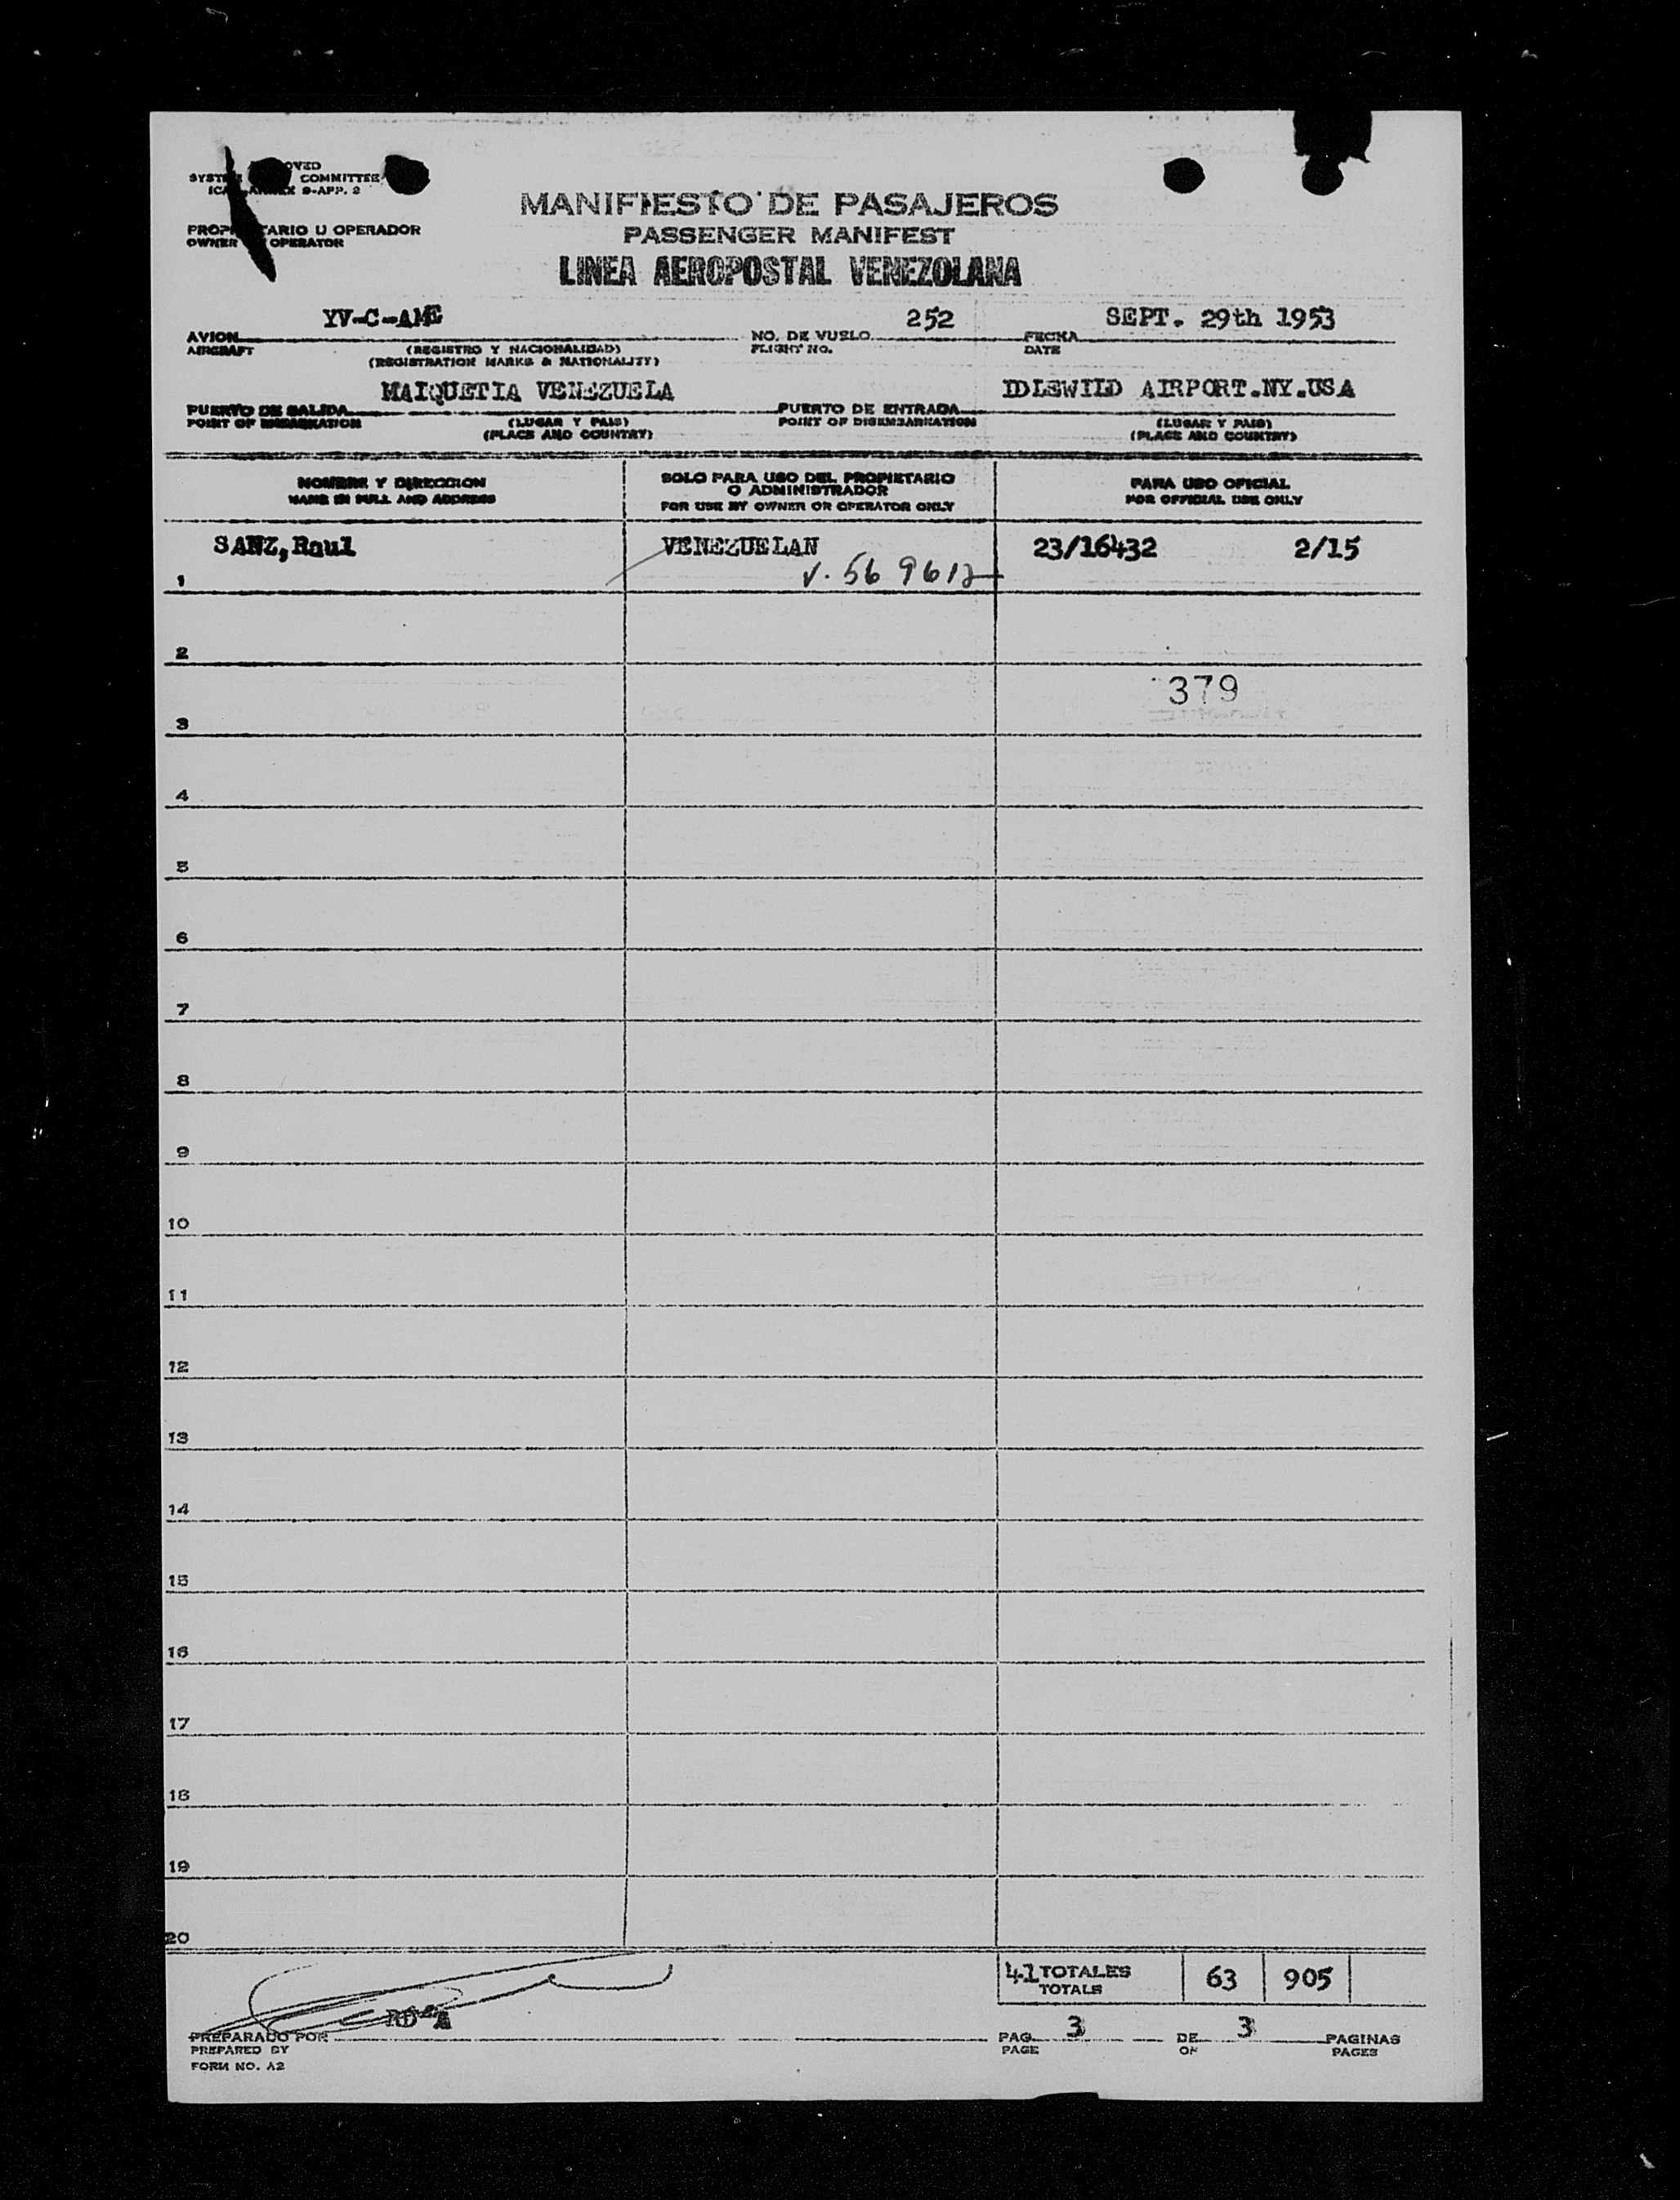 COMMITTEE
9-APP. 2
MANIFIESTO DE PASAJEROS
U OPERADOR
OWNER OPERATOR
PASSENGER MANIFEST
LINEA AEROPOSTAL VENEZOLANA
YV-C-AME 252 SEPT. 29th 1953
AVION NO. DE VUELO FECHA
AIRCRAFT (REGISTRO Y NACIONALIDAD) FLIGHT NO. DATE
(REGISTRATION MARKS & NATIONALITY)
MAIQUETIA VENEZUELA IDLEWILD AIRPORT.NY.USA
PUERTO DE SALIDA PUERTO DE ENTRADA
POINT OF EMBARKATION (LUGAR Y PAIS) POINT OF DISEMBARKATION (LUGAR Y PAIS)
(PLACE AND COUNTRY) (PLACE AND COUNTRY)
NOMBRE Y DIRECCION SOLO PARA USO DEL PROPIETARIO PARA USO OFICIAL
NAME IN FULL AND ADDRESS O ADMINISTRADOR FOR OFFICIAL USE ONLY
FOR USE BY OWNER OR OPERATOR ONLY
SANZ, Raul VENEZUELAN 23/16432 2/15
1 V. 569612
2
379
3
4
5
6
7
8
9
10
11
12
13
14
15
16
17
18
19
20
41 TOTALES 63 905
TOTALS
PREPARADO POR PAG. 3 DE 3 PAGINAS
PREPARED BY PAGE OF PAGES
FORM NO. A2